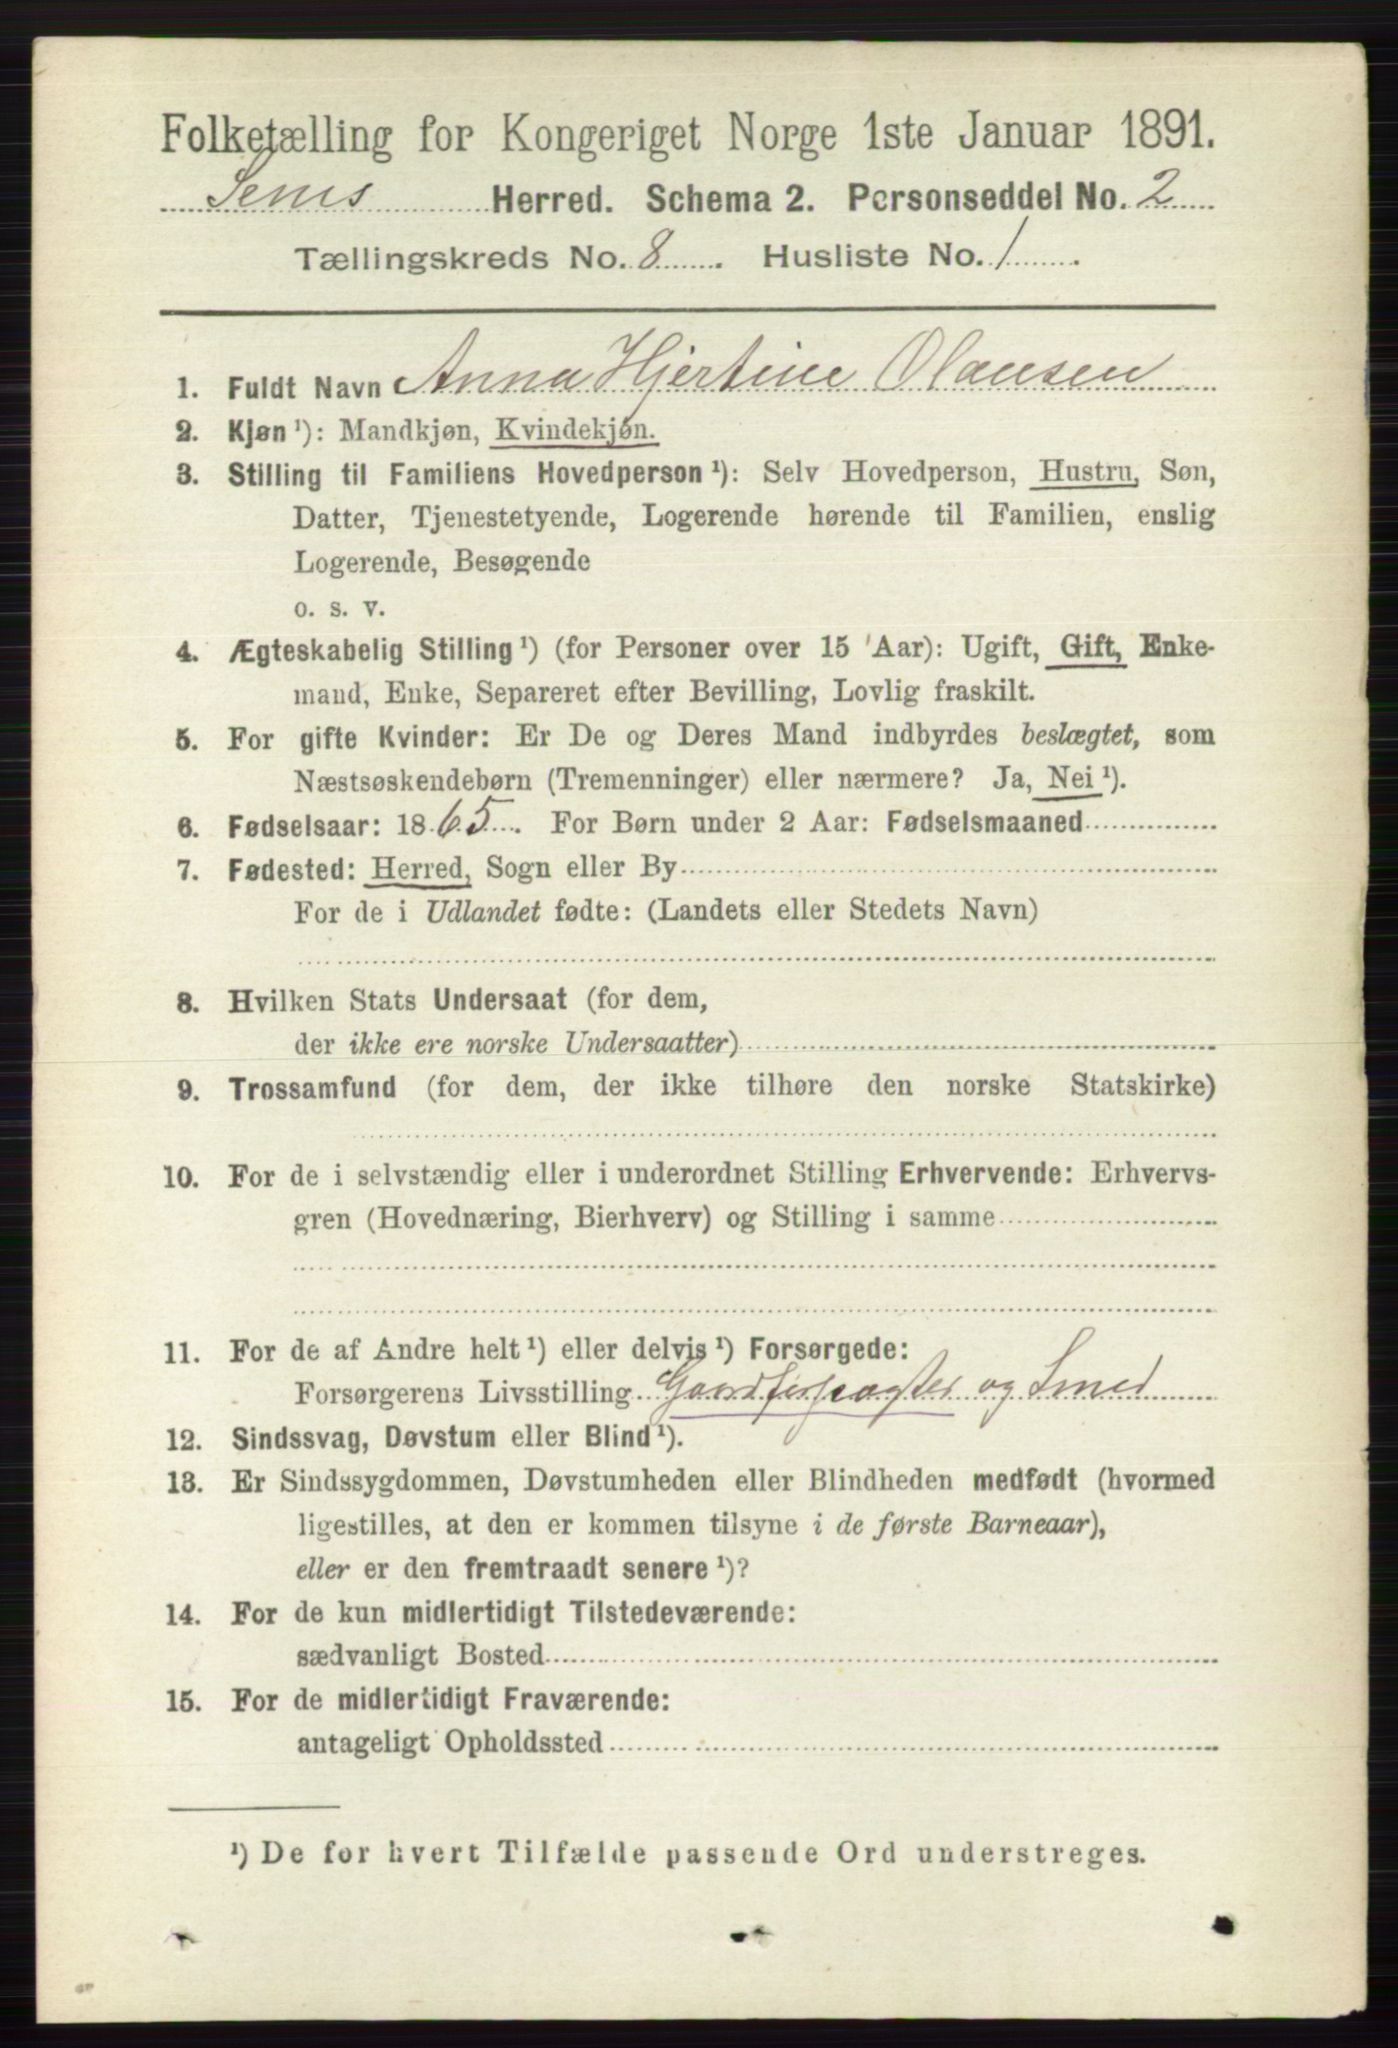 Folketælling for Kongeriget Norge 1ste Januar 1891.
Sems Herred. Schema 2. Personseddel No. 2
Tællingskreds No. 8 . Husliste No. 1 .
1. Fuldt Navn Anna Hjertine Olausen
2. Kjøn ¹): Mandkjøn, Kvindekjøn.
3. Stilling til Familiens Hovedperson ¹): Selv Hovedperson, Hustru, Søn,
Datter, Tjenestetyende, Logerende hørende til Familien, enslig
Logerende, Besøgende
o. s. v.
4. Ægteskabelig Stilling ¹) (for Personer over 15 Aar): Ugift, Gift, Enke-
mand, Enke, Separeret efter Bevilling, Lovlig fraskilt.
5. For gifte Kvinder: Er De og Deres Mand indbyrdes beslægtet, som
Næstsøskendebørn (Tremenninger) eller nærmere? Ja, Nei ¹).
6. Fødselsaar: 1865. For Børn under 2 Aar: Fødselsmaaned
7. Fødested: Herred, Sogn eller By
For de i Udlandet fødte: (Landets eller Stedets Navn)
8. Hvilken Stats Undersaat (for dem,
der ikke ere norske Undersaatter)
9. Trossamfund (for dem, der ikke tilhøre den norske Statskirke)
10. For de i selvstændig eller i underordnet Stilling Erhvervende: Erhvervs-
gren (Hovednæring, Bierhverv) og Stilling i samme
11. For de af Andre helt ¹) eller delvis ¹) Forsørgede:
Forsørgerens Livsstilling Gaardforpagter og Smed
12. Sindssvag, Døvstum eller Blind ¹).
13. Er Sindssygdommen, Døvstumheden eller Blindheden medfødt (hvormed
ligestilles, at den er kommen tilsyne i de første Barneaar),
eller er den fremtraadt senere ¹)?
14. For de kun midlertidigt Tilstedeværende:
sædvanligt Bosted
15. For de midlertidigt Fraværende:
antageligt Opholdssted
¹) De for hvert Tilfælde passende Ord understreges.